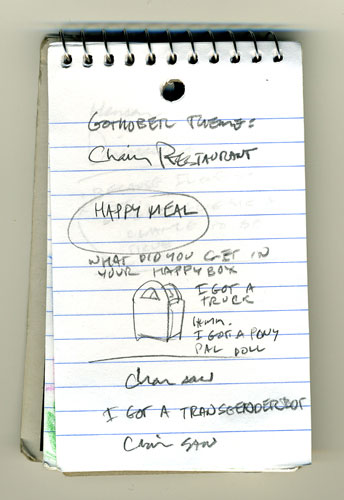 THEME:
Chain RESTAURANT
HAPPY MEAL
WHAT DID YOU GET IN
YOUR HAPPY BOX
I GOT A
TRUCK
HMM.
I GOT A PONY
PAL DOLL
Chain saw
I GOT A TRANSGENDERBOT
Chain SAW